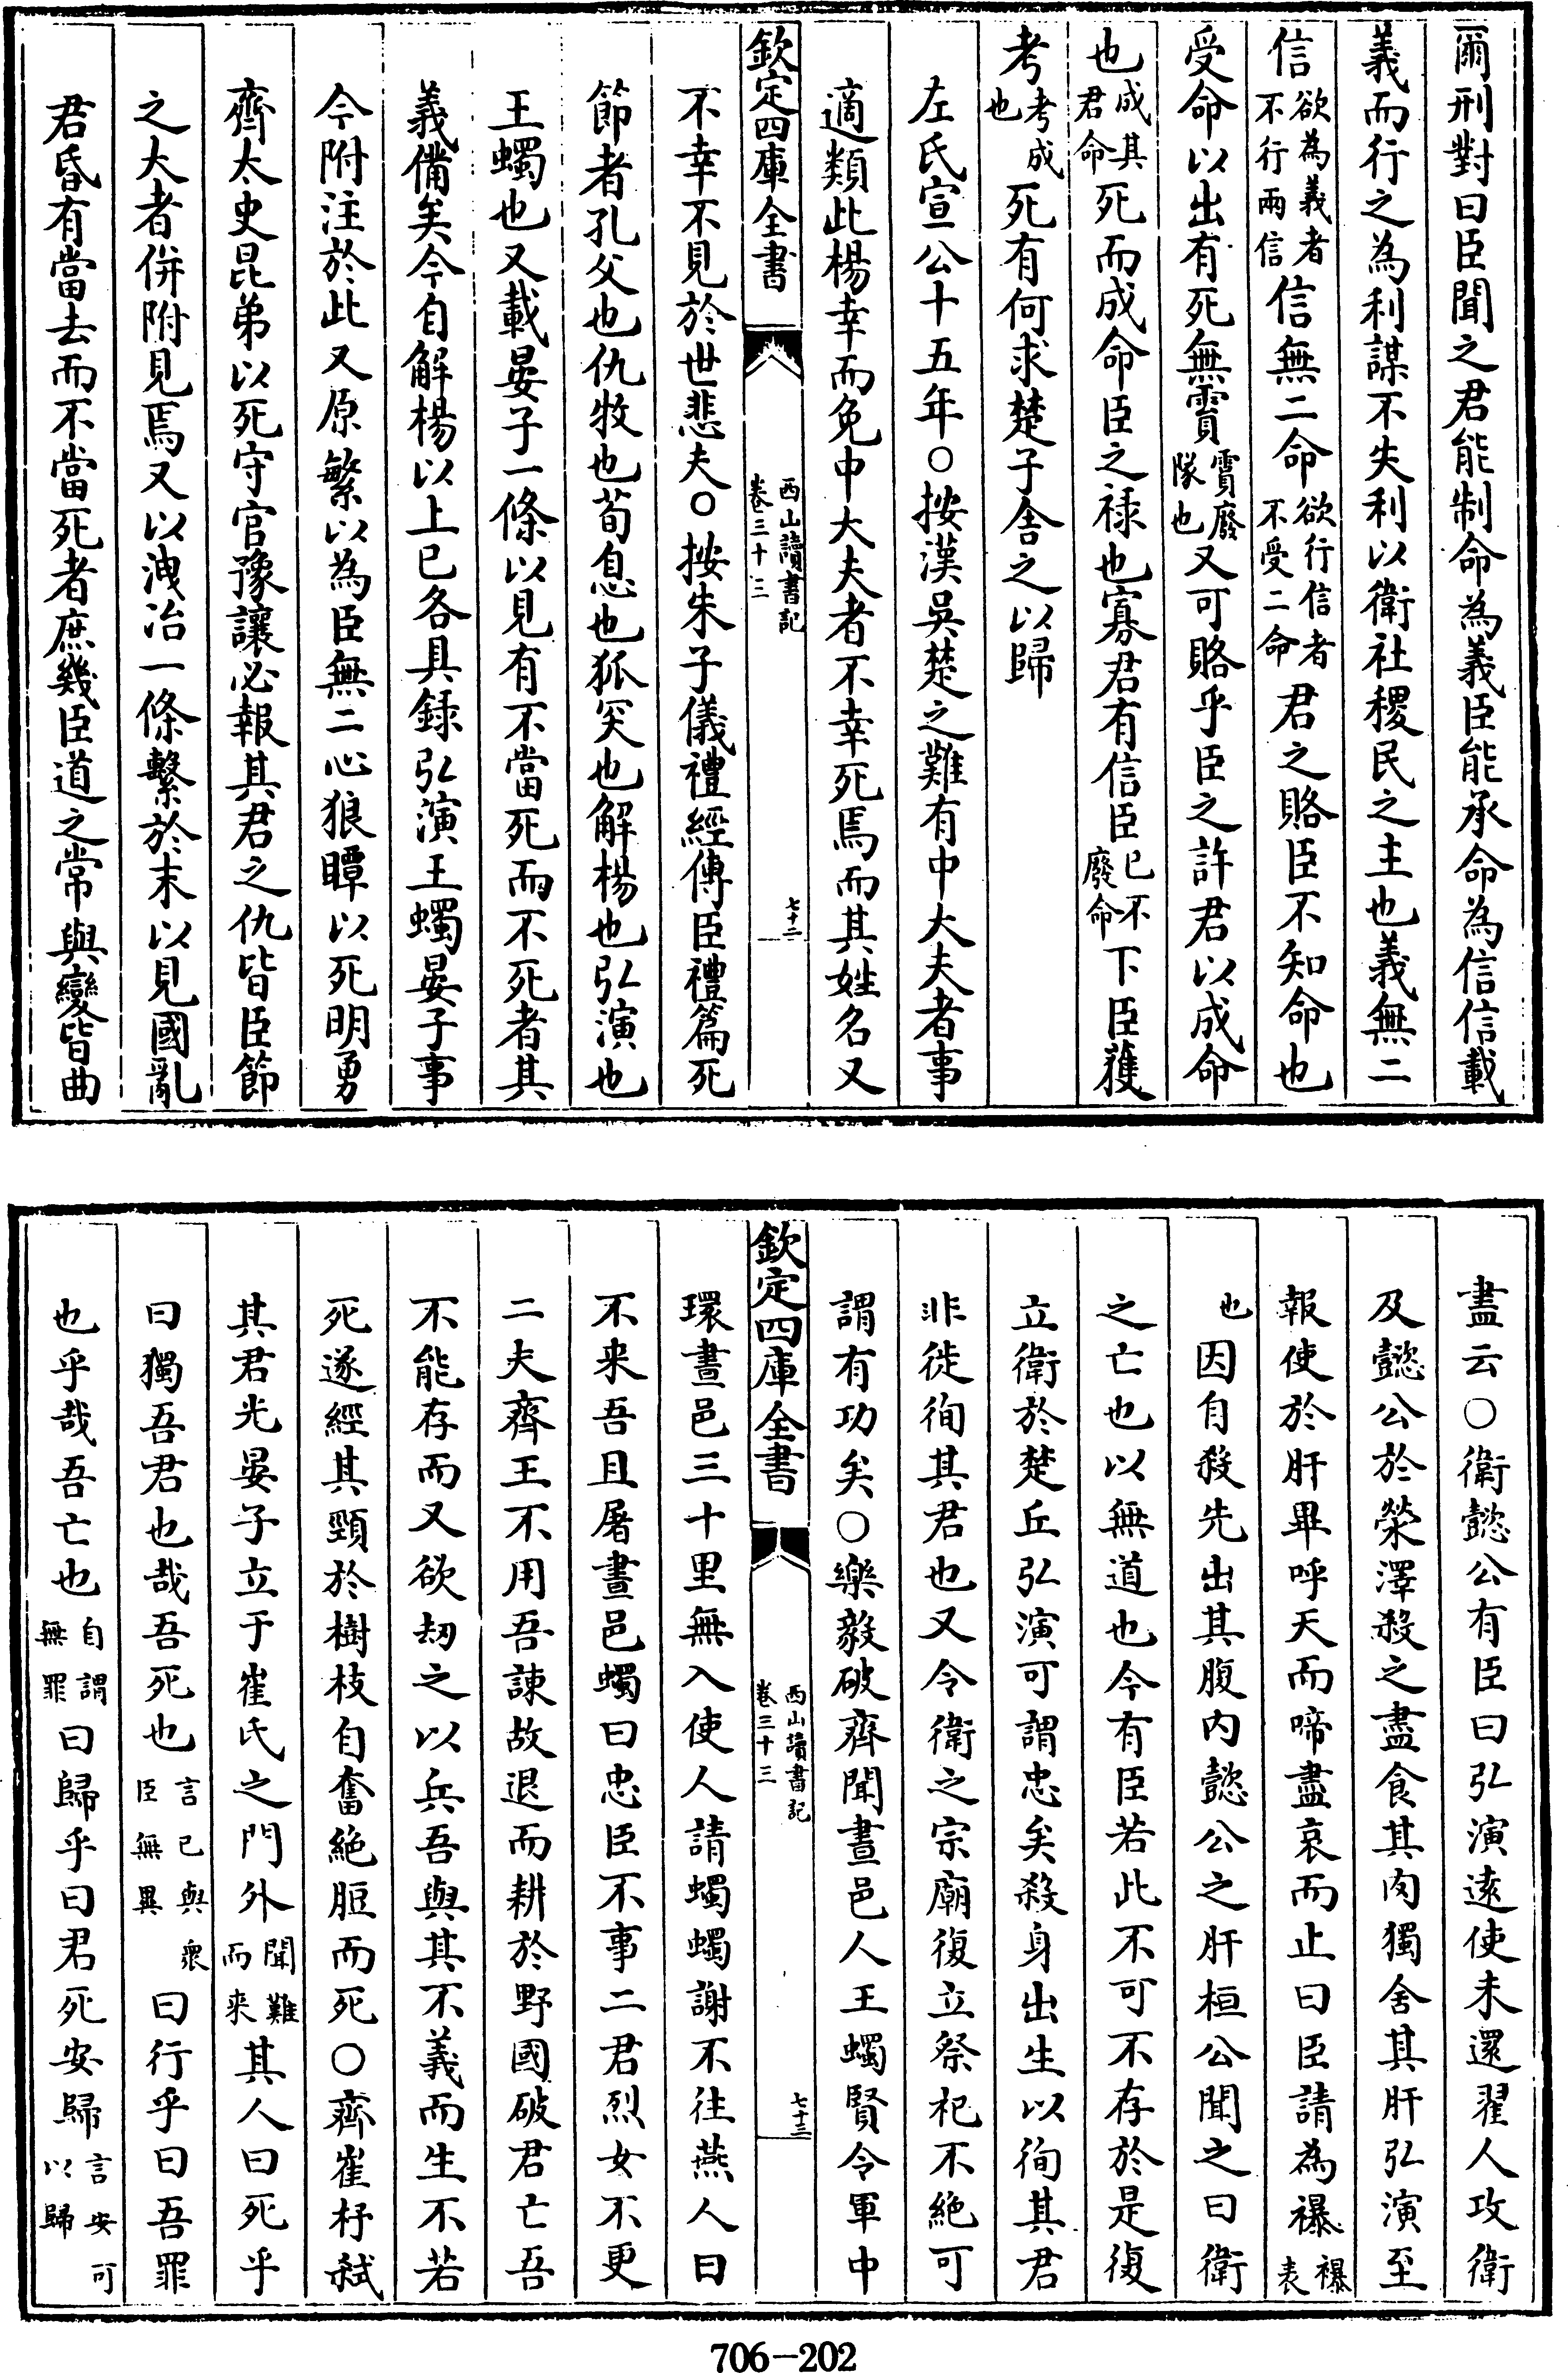 爾刑對曰臣聞之君能制命為義臣能承命為信信載
義而行之為利謀不失利以衛社稷民之主也義無二
信欲為義者不行兩信信無二命欲行信者不受二命君之賂臣不知命也
受命以出有死無霣霣廢隊也又可賂乎臣之許君以成命
也成其君命死而成命臣之祿也寡君有信臣已不廢命下臣獲
考考成也死有何求楚子舍之以歸
左氏宣公十五年○按漢吳楚之難有中大夫者事
適類此楊幸而免中大夫者不幸死焉而其姓名又
欽定四庫全書
西山讀書記
卷三十三
七十二
不幸不見於世悲夫○按朱子儀禮經傳臣禮篇死
節者孔父也仇牧也荀息也狐突也解楊也弘演也
王蠋也又載晏子一條以見有不當死而不死者其
義備矣今自解楊以上已各具録弘演王蠋晏子事
今附注於此又原繁以為臣無二心狼瞫以死明勇
齊太史昆弟以死守官豫讓必報其君之仇皆臣節
之大者併附見焉又以洩冶一條繫於末以見國亂
君昏有當去而不當死者庶幾臣道之常與變皆曲
盡云○衛懿公有臣曰弘演遠使未還翟人攻衛
及懿公於滎澤殺之盡食其肉獨舍其肝弘演至
報使於肝畢呼天而啼盡哀而止曰臣請為襮襮表
也因自殺先出其腹内懿公之肝桓公聞之曰衛
之亡也以無道也今有臣若此不可不存於是復
立衛於楚丘弘演可謂忠矣殺身出生以徇其君
非徒徇其君也又令衛之宗廟復立祭祀不絶可
謂有功矣○樂毅破齊聞晝邑人王蠋賢令軍中
欽定四庫全書
西山讀書記
卷三十三
七十三
環晝邑三十里無入使人請蠋蠋謝不往燕人曰
不来吾且屠晝邑蠋曰忠臣不事二君烈女不更
二夫齊王不用吾諫故退而耕於野國破君亡吾
不能存而又欲刼之以兵吾與其不義而生不若
死遂經其頸於樹枝自奮絶脰而死○齊崔杼弑
其君光晏子立于崔氏之門外聞難而来其人曰死乎
曰獨吾君也哉吾死也言已與衆臣無異曰行乎曰吾罪
也乎哉吾亡也自謂無罪曰歸乎曰君死安歸言安可以歸
706-202